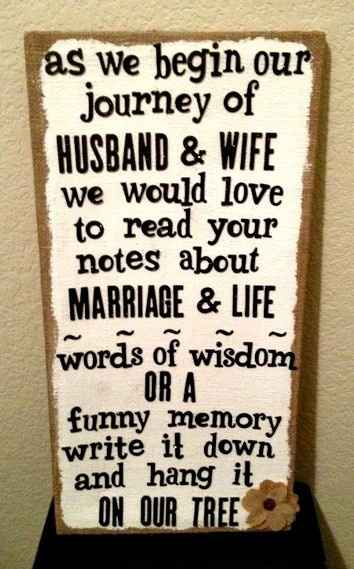 as we begin our
journey of
HUSBAND & WIFE
we would love
to read your
notes about
MARRIAGE & LIFE
~ ~ ~ ~ ~
words of wisdom
OR A
funny memory
write it down
and hang it
ON OUR TREE